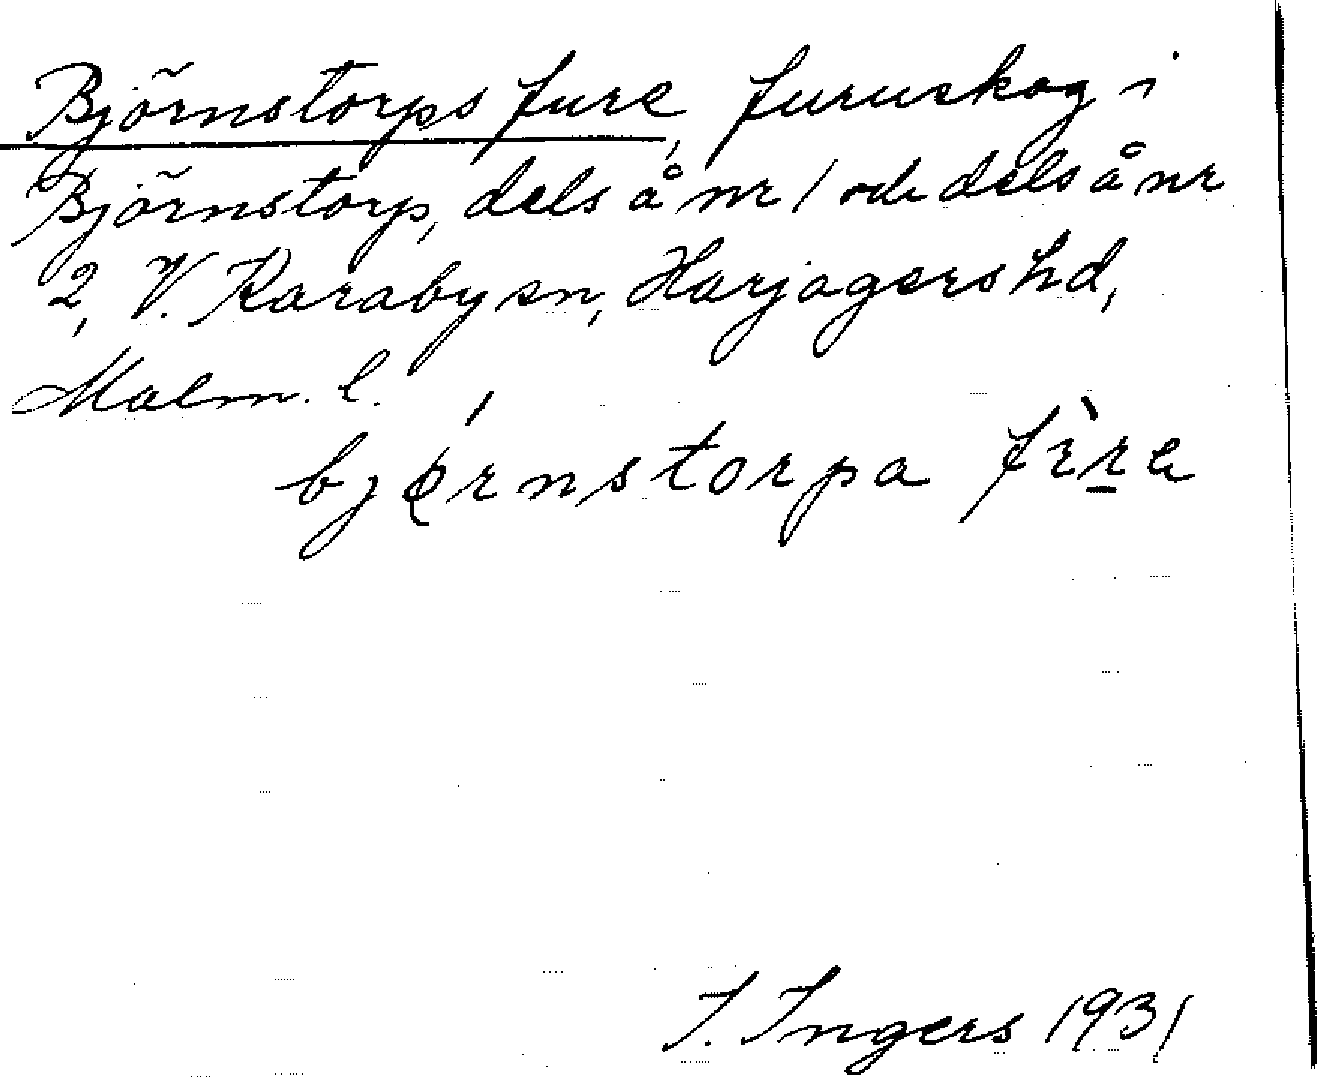 Björnstorps fure, furuskog i
Björnstorp, dels å nr 1 och dels å nr
2, V. Karaby sn, Harjagers hd,
Malm. l.
bjørnstorpa
I. Ingers 1931